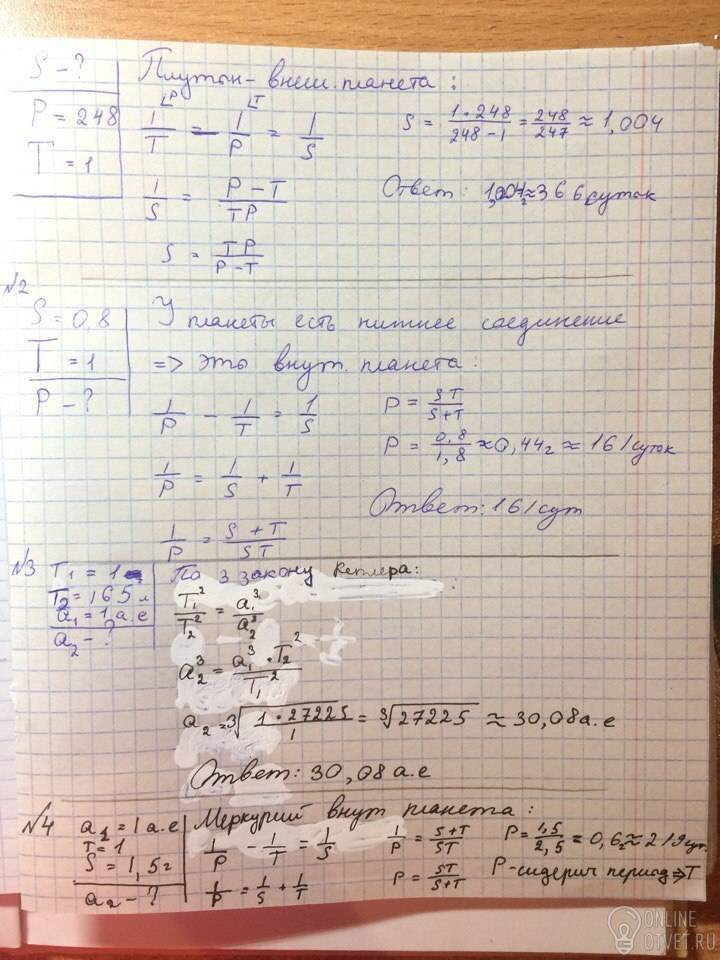 S - ?
P = 248
T = 1
Плутон - внеш. планета :
1/T - 1/P = 1/S
1/S = (P - T)/(TP)
S = TP/(P - T)
S = (1 · 248)/(248 - 1) = 248/247 ≈ 1,004
Ответ: 1,004г ≈ 366 суток
№2
S = 0,8
T = 1
P - ?
У планеты есть нижнее соединение
=> это внут. планета :
1/P - 1/T = 1/S
1/P = 1/S + 1/T
1/P = (S + T)/(ST)
P = ST/(S+T)
P = 0,8/1,8 ≈ 0,44г ≈ 161 суток
Ответ: 161 сут
№3
T₁ = 1
T₂ = 165 л
a₁ = 1 а.е
a₂ - ?
По 3 закону Кеплера:
T₁²/T₂² = a₁³/a₂³
a₂³ = (a₁³ · T₂²)/T₁²
a₂ = ³√(1 · 27225/1) = ³√27225 ≈ 30,08 а.е
Ответ: 30,08 а.е
№4
a₁ = 1 а.е
T = 1
S = 1,5г
a₂ - ?
Меркурий внут планета :
1/P - 1/T = 1/S
1/P = 1/S + 1/T
1/P = (S+T)/(ST)
P = ST/(S+T)
P = 1,5/2,5 = 0,6г ≈ 219 сут.
P - сидерич период => T
ONLINE
OTVET.RU